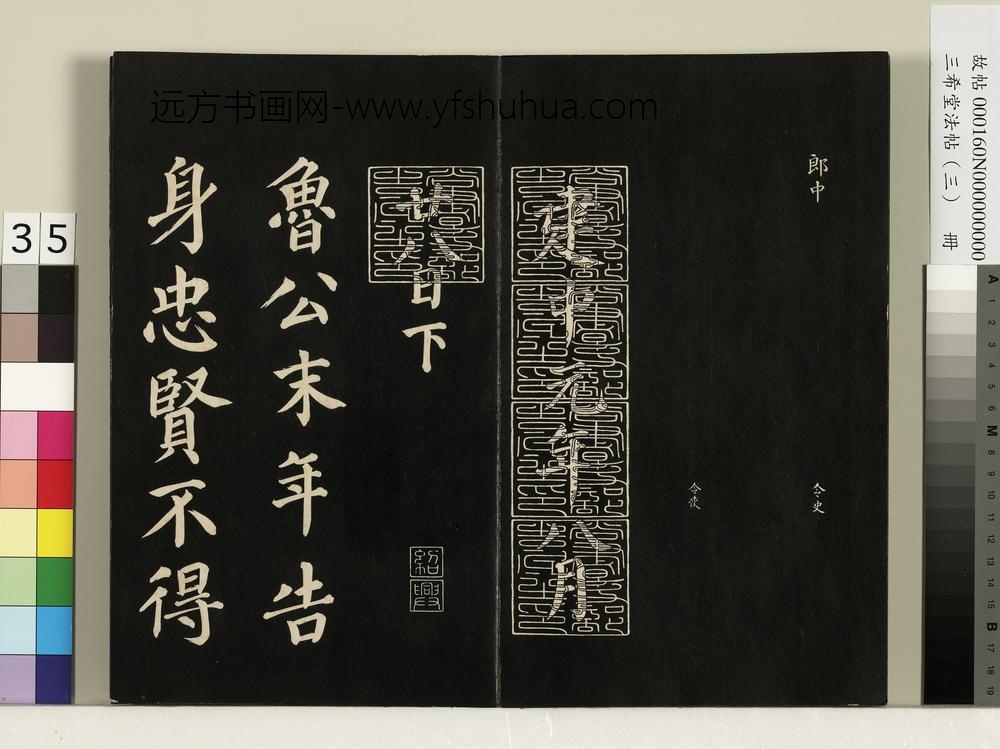 远方书画网-www.yfshuhua.com
故帖 000160N000000000
三希堂法帖（三） 冊
郎中
令史
令使
建中元年八月
廿八日下
紹興
魯公末年告
身忠賢不得
35
A 1 2 3 4 5 6 M 8 9 10 11 12 13 14 15 B 17 18 19